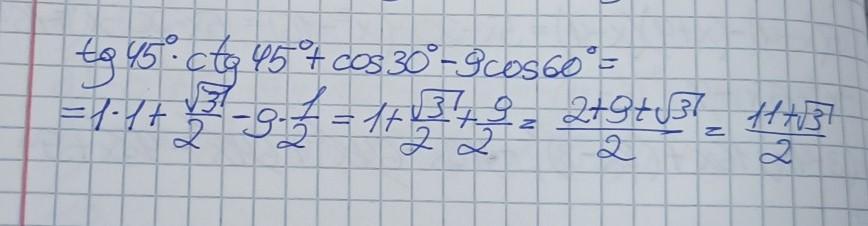 tg 45° · ctg 45° + cos 30° - 9cos 60° =
= 1 · 1 + √3/2 - 9 · 1/2 = 1 + √3/2 + 9/2 = (2+9+√3)/2 = (11+√3)/2